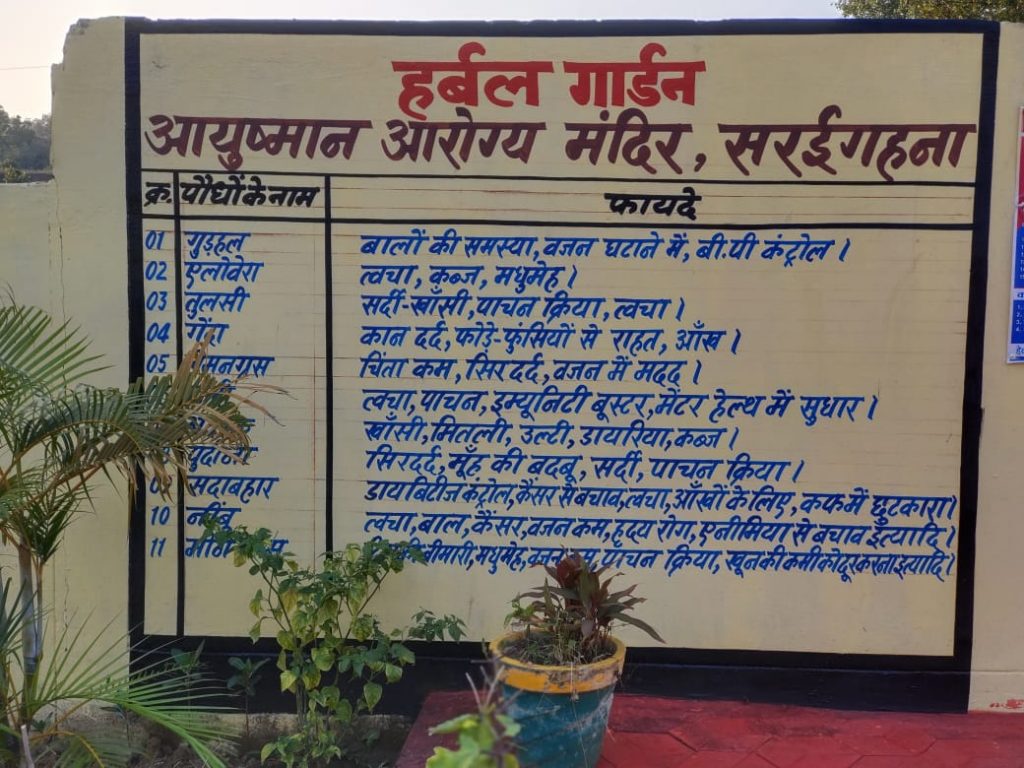 हर्बल गार्डन
आयुष्मान आरोग्य मंदिर, सरईगहना
क्र. पौधों के नाम फायदे
01 गुड़हल बालों की समस्या, वजन घटाने में, बी.पी कंट्रोल।
02 एलोवेरा त्वचा, कब्ज, मधुमेह।
03 तुलसी सर्दी-खाँसी, पाचन क्रिया, त्वचा।
04 गेंदा कान दर्द, फोड़े-फुंसियों से राहत, आँख।
05 चिंता कम, सिरदर्द, वजन में मदद।
त्वचा, पाचन, इम्यूनिटी बूस्टर, मेंटर हेल्थ में सुधार।
खाँसी, मितली, उल्टी, डायरिया, कब्ज।
सिरदर्द, मूँह की बदबू, सर्दी, पाचन क्रिया।
सदाबहार डायबिटीज कंट्रोल, कैंसर से बचाव, त्वचा, आँखों के लिए, कफ में छुटकारा।
10 नींबू त्वचा, बाल, कैंसर, वजन कम, हृदय रोग, एनीमिया से बचाव इत्यादि।
11 मधुमेह, पाचन क्रिया, खून की कमी को दूर करना इत्यादि।